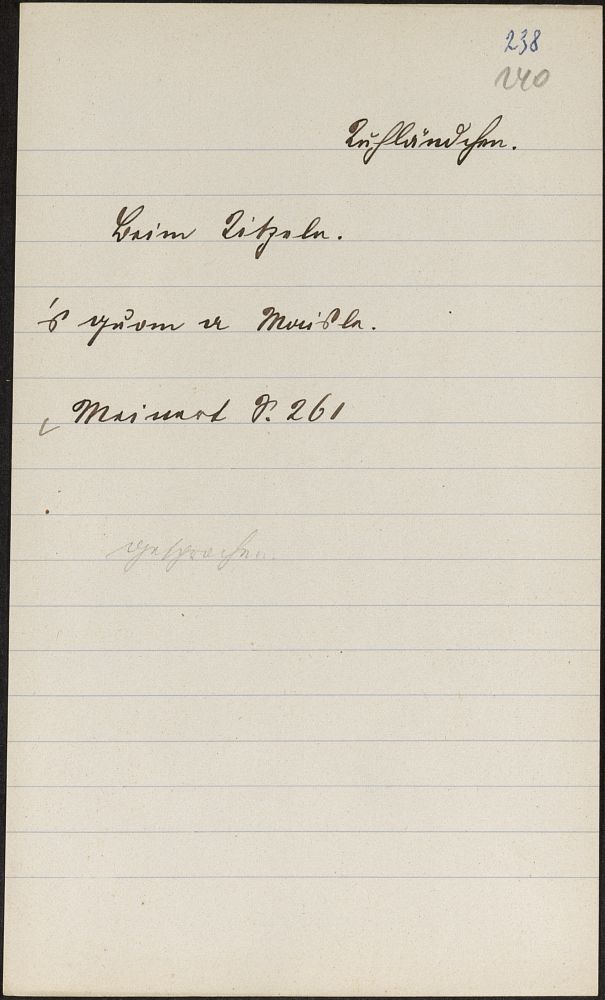 238
240
Kuhländchen.
Beim Kitzeln.
's quom a Maisla.
Meinert S. 261
gesprochen